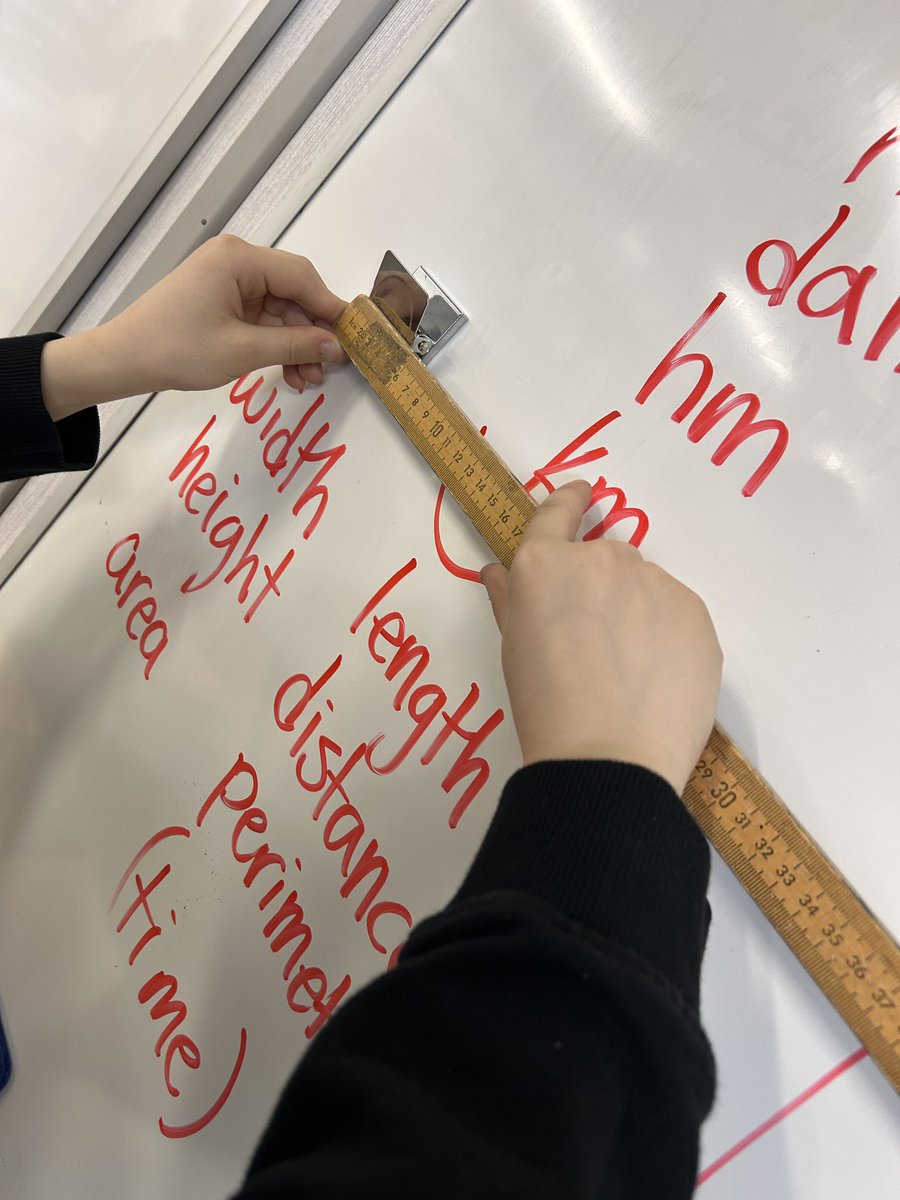 da
hm
km
width
height
area
length
distanc
perimet
(time)
6 7 8 9 10 11 12 13 14 15 16 17
29 30 31 32 33 34 35 36 37